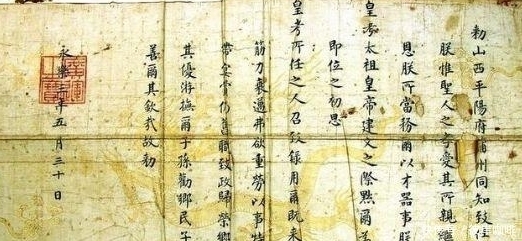 勅山西平陽府蒲州同知致仕
朕惟聖人之孝愛其所親繼
恩朕所當務爾以才器事朕
皇考太祖皇帝建文之際黜爾
即位之初思
皇考所任之人召致錄用爾既來
筋力衰邁弗欲重勞以事特
帶宴賞仍舊職致政歸榮鄉
其優游撫爾子孫勸鄉民子
善爾其欽哉故勅
永樂三年五月三十日